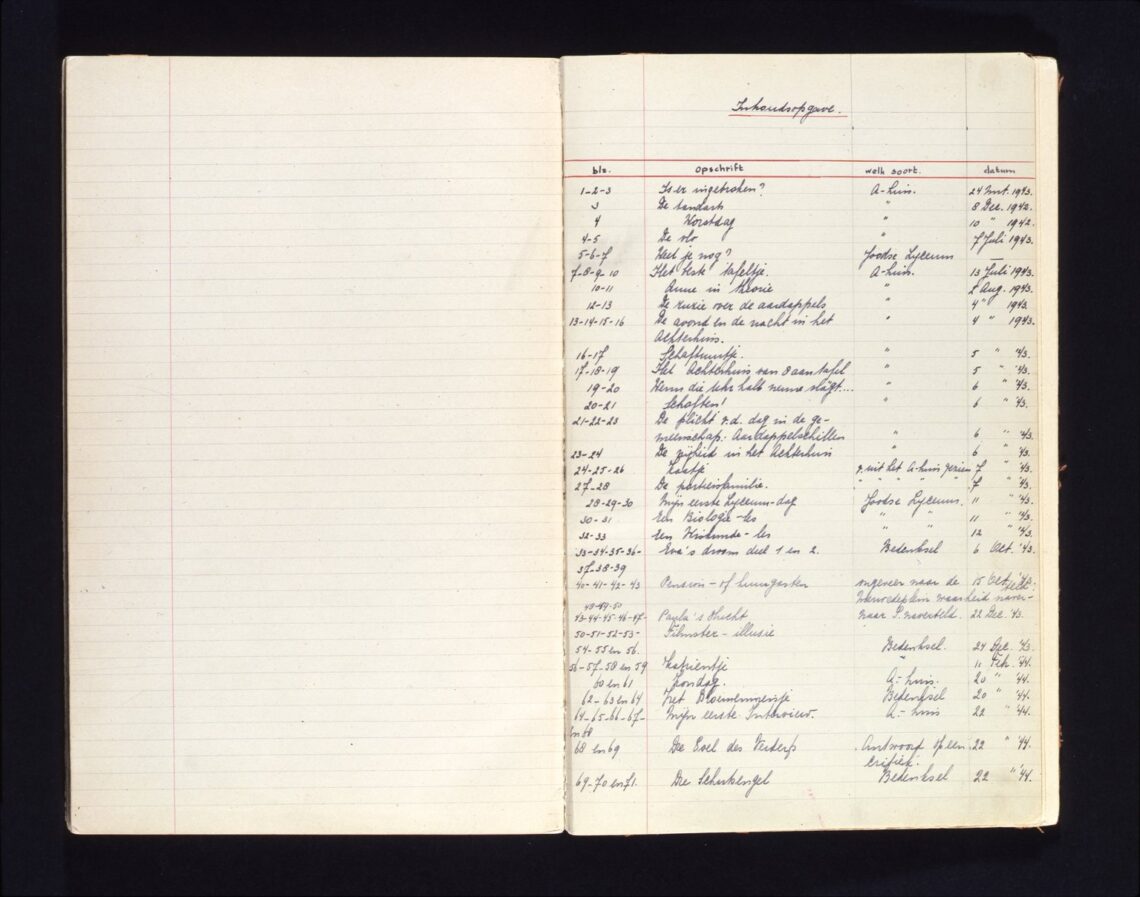 Inhoudsopgave.
blz. opschrift welk soort. datum
1-2-3 Is er ingebroken? A-huis. 24 Mrt. 1943.
3 De tandarts " 8 Dec. 1942.
4 Worstdag " 10 " 1942.
4-5 De vlo " 7 Juli 1943.
5-6-7 Weet je nog? Joodse Lyceum —
7-8-9-10 Het beste tafeltje. A-huis. 13 Juli 1943.
10-11 Anne in theorie " 2 Aug. 1943.
12-13 De ruzie over de aardappels " 4 " 1943.
13-14-15-16 De avond en de nacht in het " 4 " 1943.
Achterhuis.
16-17 Schaftuurtje. " 5 " '43.
17-18-19 Het Achterhuis van 8 aan tafel " 5 " '43.
19-20 Wenn die Uhr halb neune slägt.... " 6 " '43.
20-21 Schaften! " 6 " '43.
21-22-23 De plicht v.d. dag in de ge-
meenschap: Aardappelschillen " 6 " '43.
23-24 De vrijheid in het Achterhuis " 6 " '43.
24-25-26 Kaatje v. uit het A-huis gezien 7 " '43.
27-28 De portiersfamilie. " " " " " 7 " '43.
28-29-30 Mijn eerste Lyceum-dag Joodse Lyceum. 11 " '43.
30-31 Een Biologie-les " " 11 " '43.
32-33 Een Wiskunde-les " " 12 " '43.
33-34-35-36- Eva's droom deel 1 en 2. Bedenksel 6 Oct. '43.
37-38-39
40-41-42-43 Pension- of huurgasten ongeveer naar de 15 Oct. '43.
waarheid naver-
43-44-45-46-47- Paula's vlucht naar P. naverteld. 22 Dec. '43.
50-51-52-53- Filmster-illusie
54-55 en 56. Bedenksel. 24 Dec. '43
56-57-58 en 59 Katrientje " 11 Feb. '44.
60 en 61 Zondag. A-huis. 20 " '44.
62-63 en 64 Het Bloemenmeisje Bedenksel 20 " '44.
64-65-66-67- Mijn eerste Interview. A-huis 22 " '44.
en 68
68 en 69 Antwoord op een 22 " '44.
critiek.
69-70 en 71. Die Schutzengel Bedenksel 22 " '44.